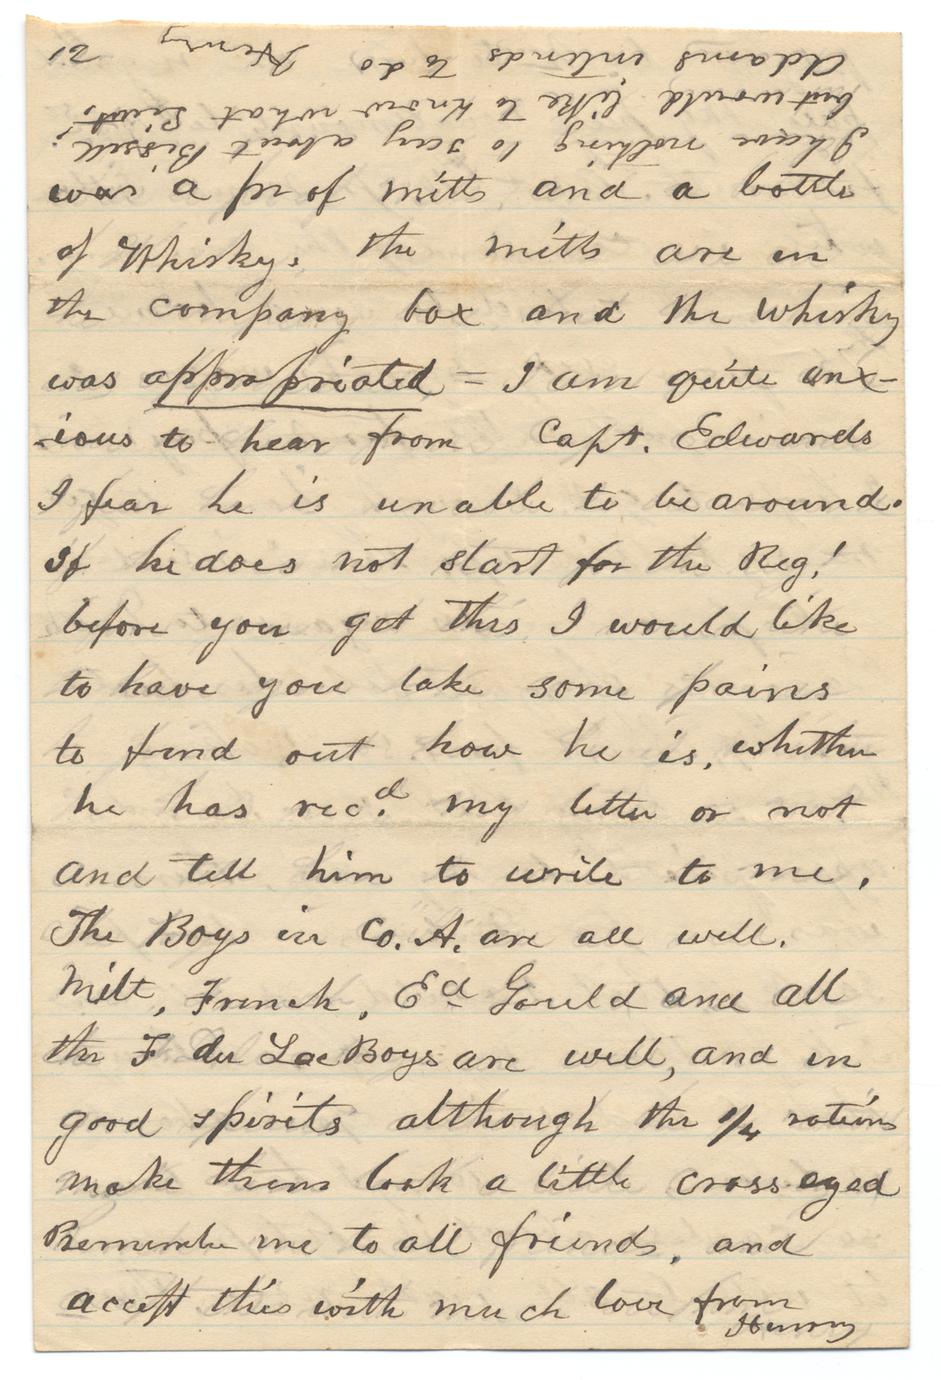 was a pr of mitts and a bottle
of Whisky. the mitts are in
the company box and the whisky
was appropriated = I am quite anx-
-ious to hear from Capt. Edwards
I fear he is unable to be around.
If he does not start for the Reg!
before you get this I would like
to have you take some pains
to find out how he is, whether
he has recd. my letter or not
and tell him to write to me.
The Boys in Co. A. are all well.
Milt, French, Ed Gould and all
the F du Lac Boys are well, and in
good spirits although the 1/4 rations
make them look a little cross eyed
Remember me to all friends, and
accept this with much love from
Henry
I have nothing to say about Bissell!
but would like to know what Lieut.
Adams intends to do Henry